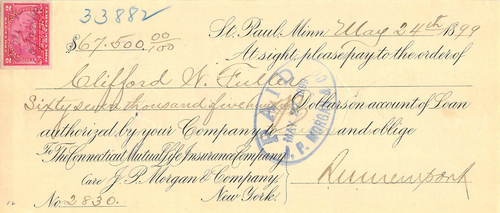 33882
St. Paul, Minn May 24th 1899
$67.500.00/100
At sight, please pay to the order of
Clifford W. Fuller
Sixty seven thousand five hundred Dollars on account of Loan
authorized by your Company to and oblige
To The Connecticut Mutual Life Insurance Company,
Care J. P. Morgan & Company,
New York.
No. 2830.
PAID
MAY
J. P. MORGAN & CO
2 2